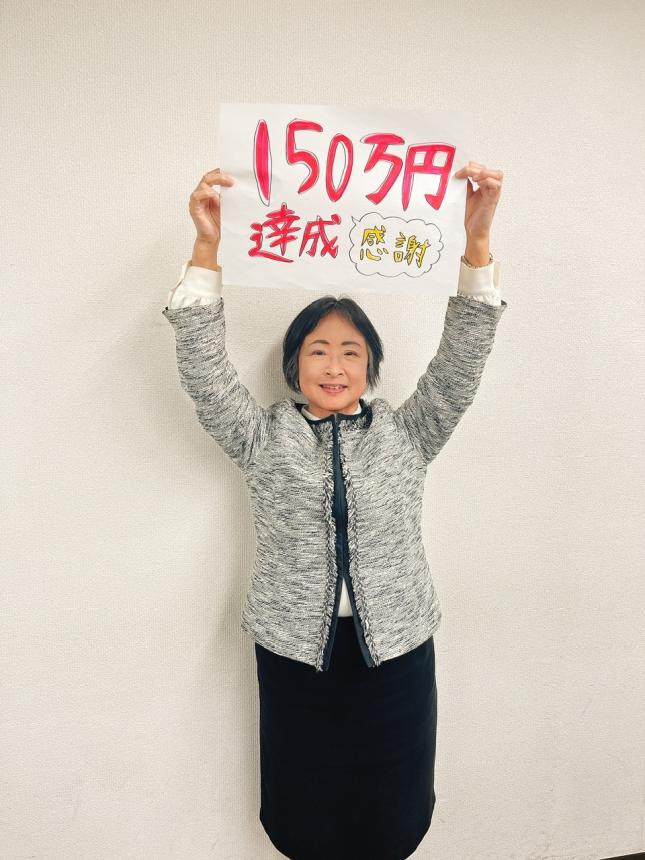 150万円
達成 感謝